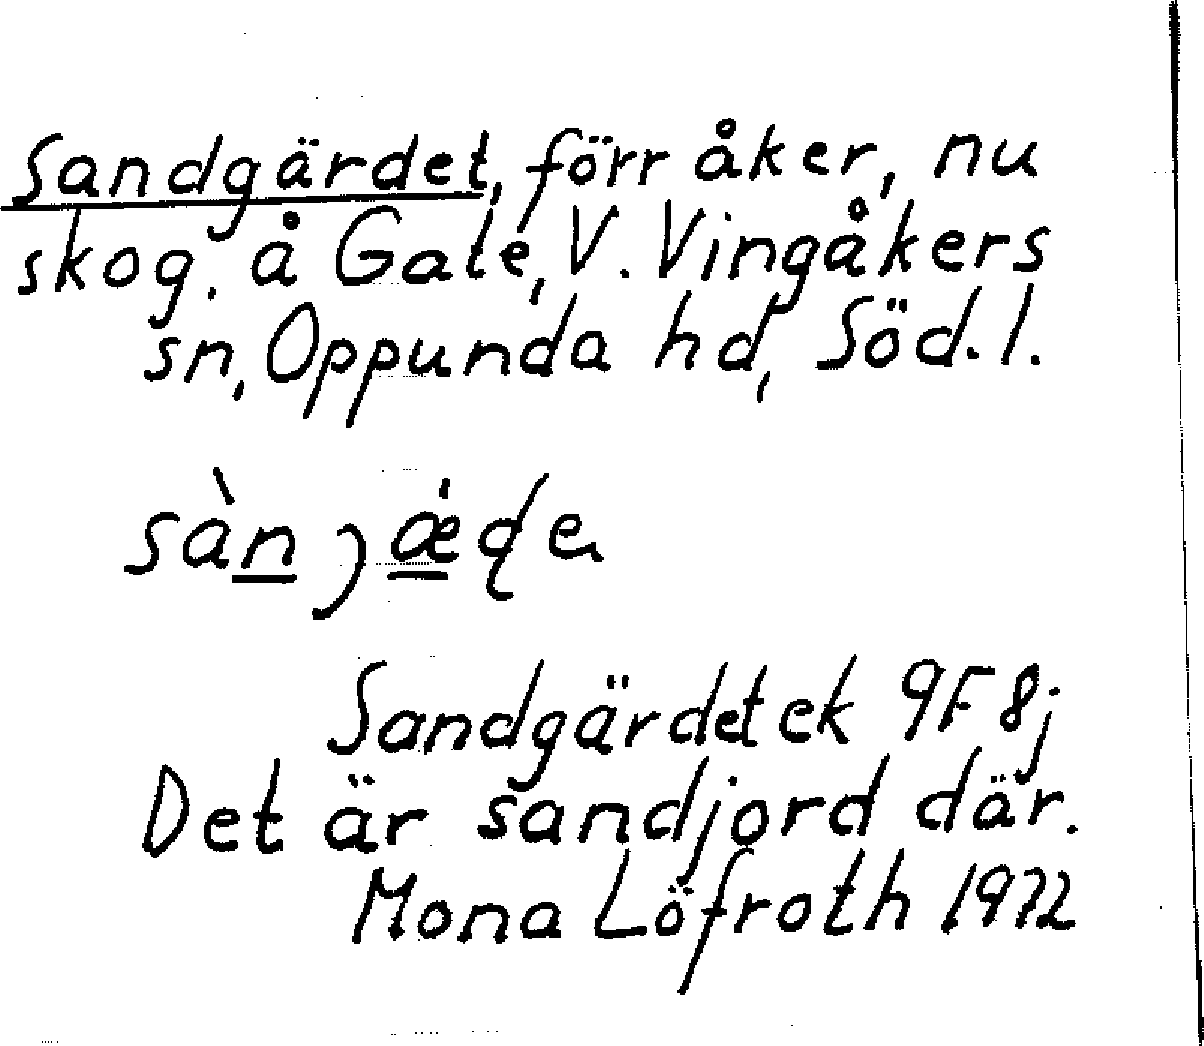 Sandgärdet, förr åker, nu
skog. å Gate, V. Vingåkers
sn, Oppunda hd, Söd.l.
Sandgärdet ek 9F 8j
Det är sandjord där.
Mona Löfroth 1972